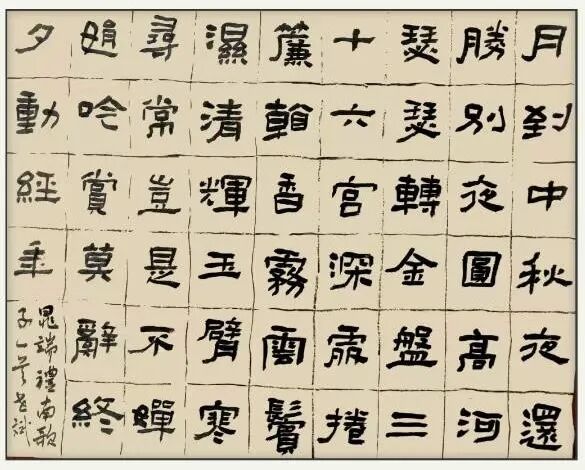 月到中秋夜還
勝別夜圓高河
瑟瑟轉金盤三
十六宮深處捲
簾看香霧雲鬢
濕清輝玉臂寒
尋常豈是不嬋
娟吟賞莫辭終
夕動經年
晁端禮南歌
子一首